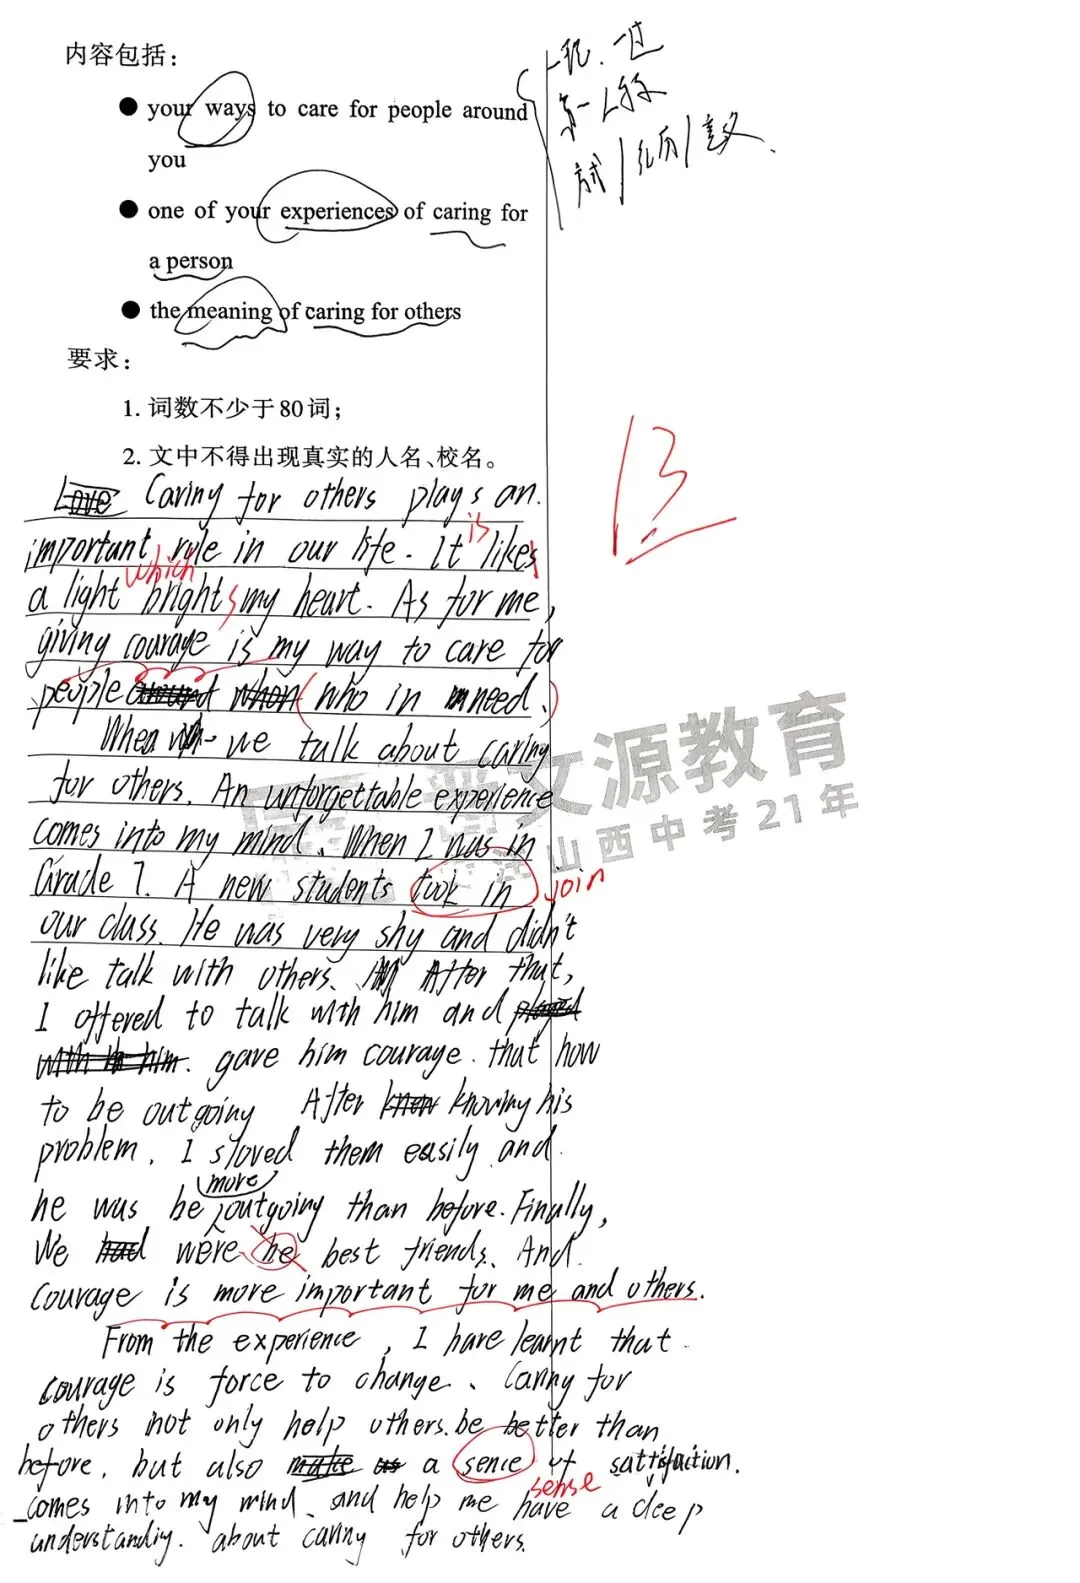 内容包括：
● your ways to care for people around
you
● one of your experiences of caring for
a person
● the meaning of caring for others
要求：
1. 词数不少于80词；
2. 文中不得出现真实的人名、校名。
一现、一过
第一人称
/经历/意义
13
Caring for others plays an
important role in our life. It likes
is
a light bright my heart. As for me,
which s
giving courage is my way to care for
people who in need.
When we talk about caring
for others. An unforgettable experience
comes into my mind. When I was in
Grade 7. A new students took in
join
our class. He was very shy and didn't
like talk with others. After that,
I offered to talk with him and
gave him courage. that how
to be outgoing After knowing his
problem. I sloved them easily and
more
he was be outgoing than before. Finally,
We were be best friends. And
courage is more important for me and others.
From the experience, I have learnt that
courage is force to change. Caring for
others not only help others be better than
before. but also a sence of satisfaction.
sense
comes into my mind. and help me have a deep
understanding. about caring for others.
文源教育
山西中考21年